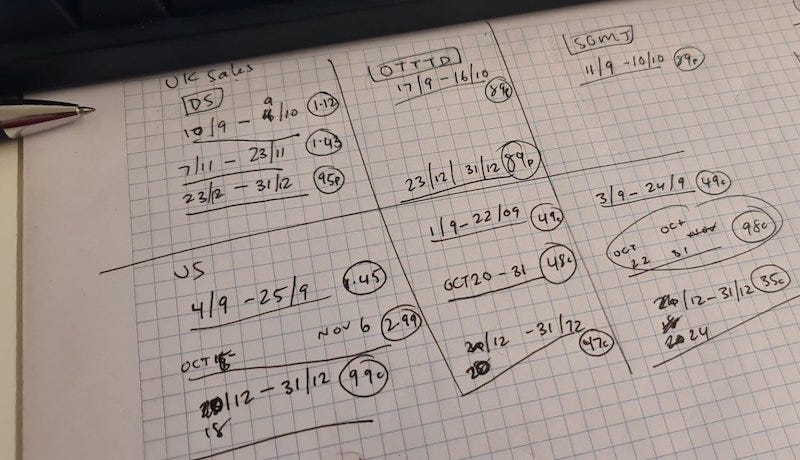 UK Sales
DS
10/9 - 9/10 1.12
7/11 - 23/11 1.43
23/12 - 31/12 95p
OTTTD
17/9 - 16/10
89p
23/12 / 31/12 89p
SGMJ
11/9 - 10/10 89p
US
4/9 - 25/9 1.45
OCT
NOV 6 2.99
/12 - 31/12 99c
18
1/9 - 22/09 49c
OCT 20 - 31 48c
/12 - 31/12
47c
3/9 - 24/9 49c
OCT 22
OCT 31
98c
/12 - 31/12 35c
24